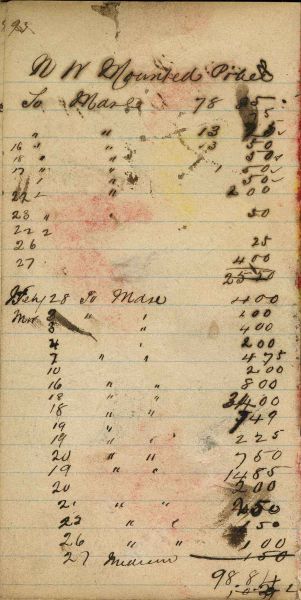 N W Mounted Police
To Mdse 78
" " 13 25
16 " " 13 50
18 " " 50
17 " " 50
22 " 2 00
23 " 50
22 2
26 25
27 4 00
25 50
Feby 28 To Mdse 4 00
Mar 2 " " 1 00
3 4 00
4 " 2 00
7 " " 4 75
10 2 00
16 " " 8 00
18 " " 34 00
18 " " 7 49
19 "
19 " " 2 25
20 " " 7 50
19 " " 14 85
20 2 00
21 " " 2 50
22 " " 1 50
26 " " 1 00
27 1 50
98.84